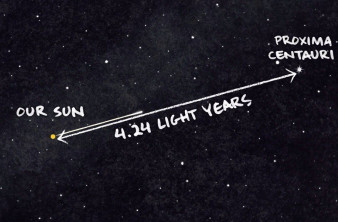 PROXIMA
CENTAURI
OUR SUN
4.24 LIGHT YEARS